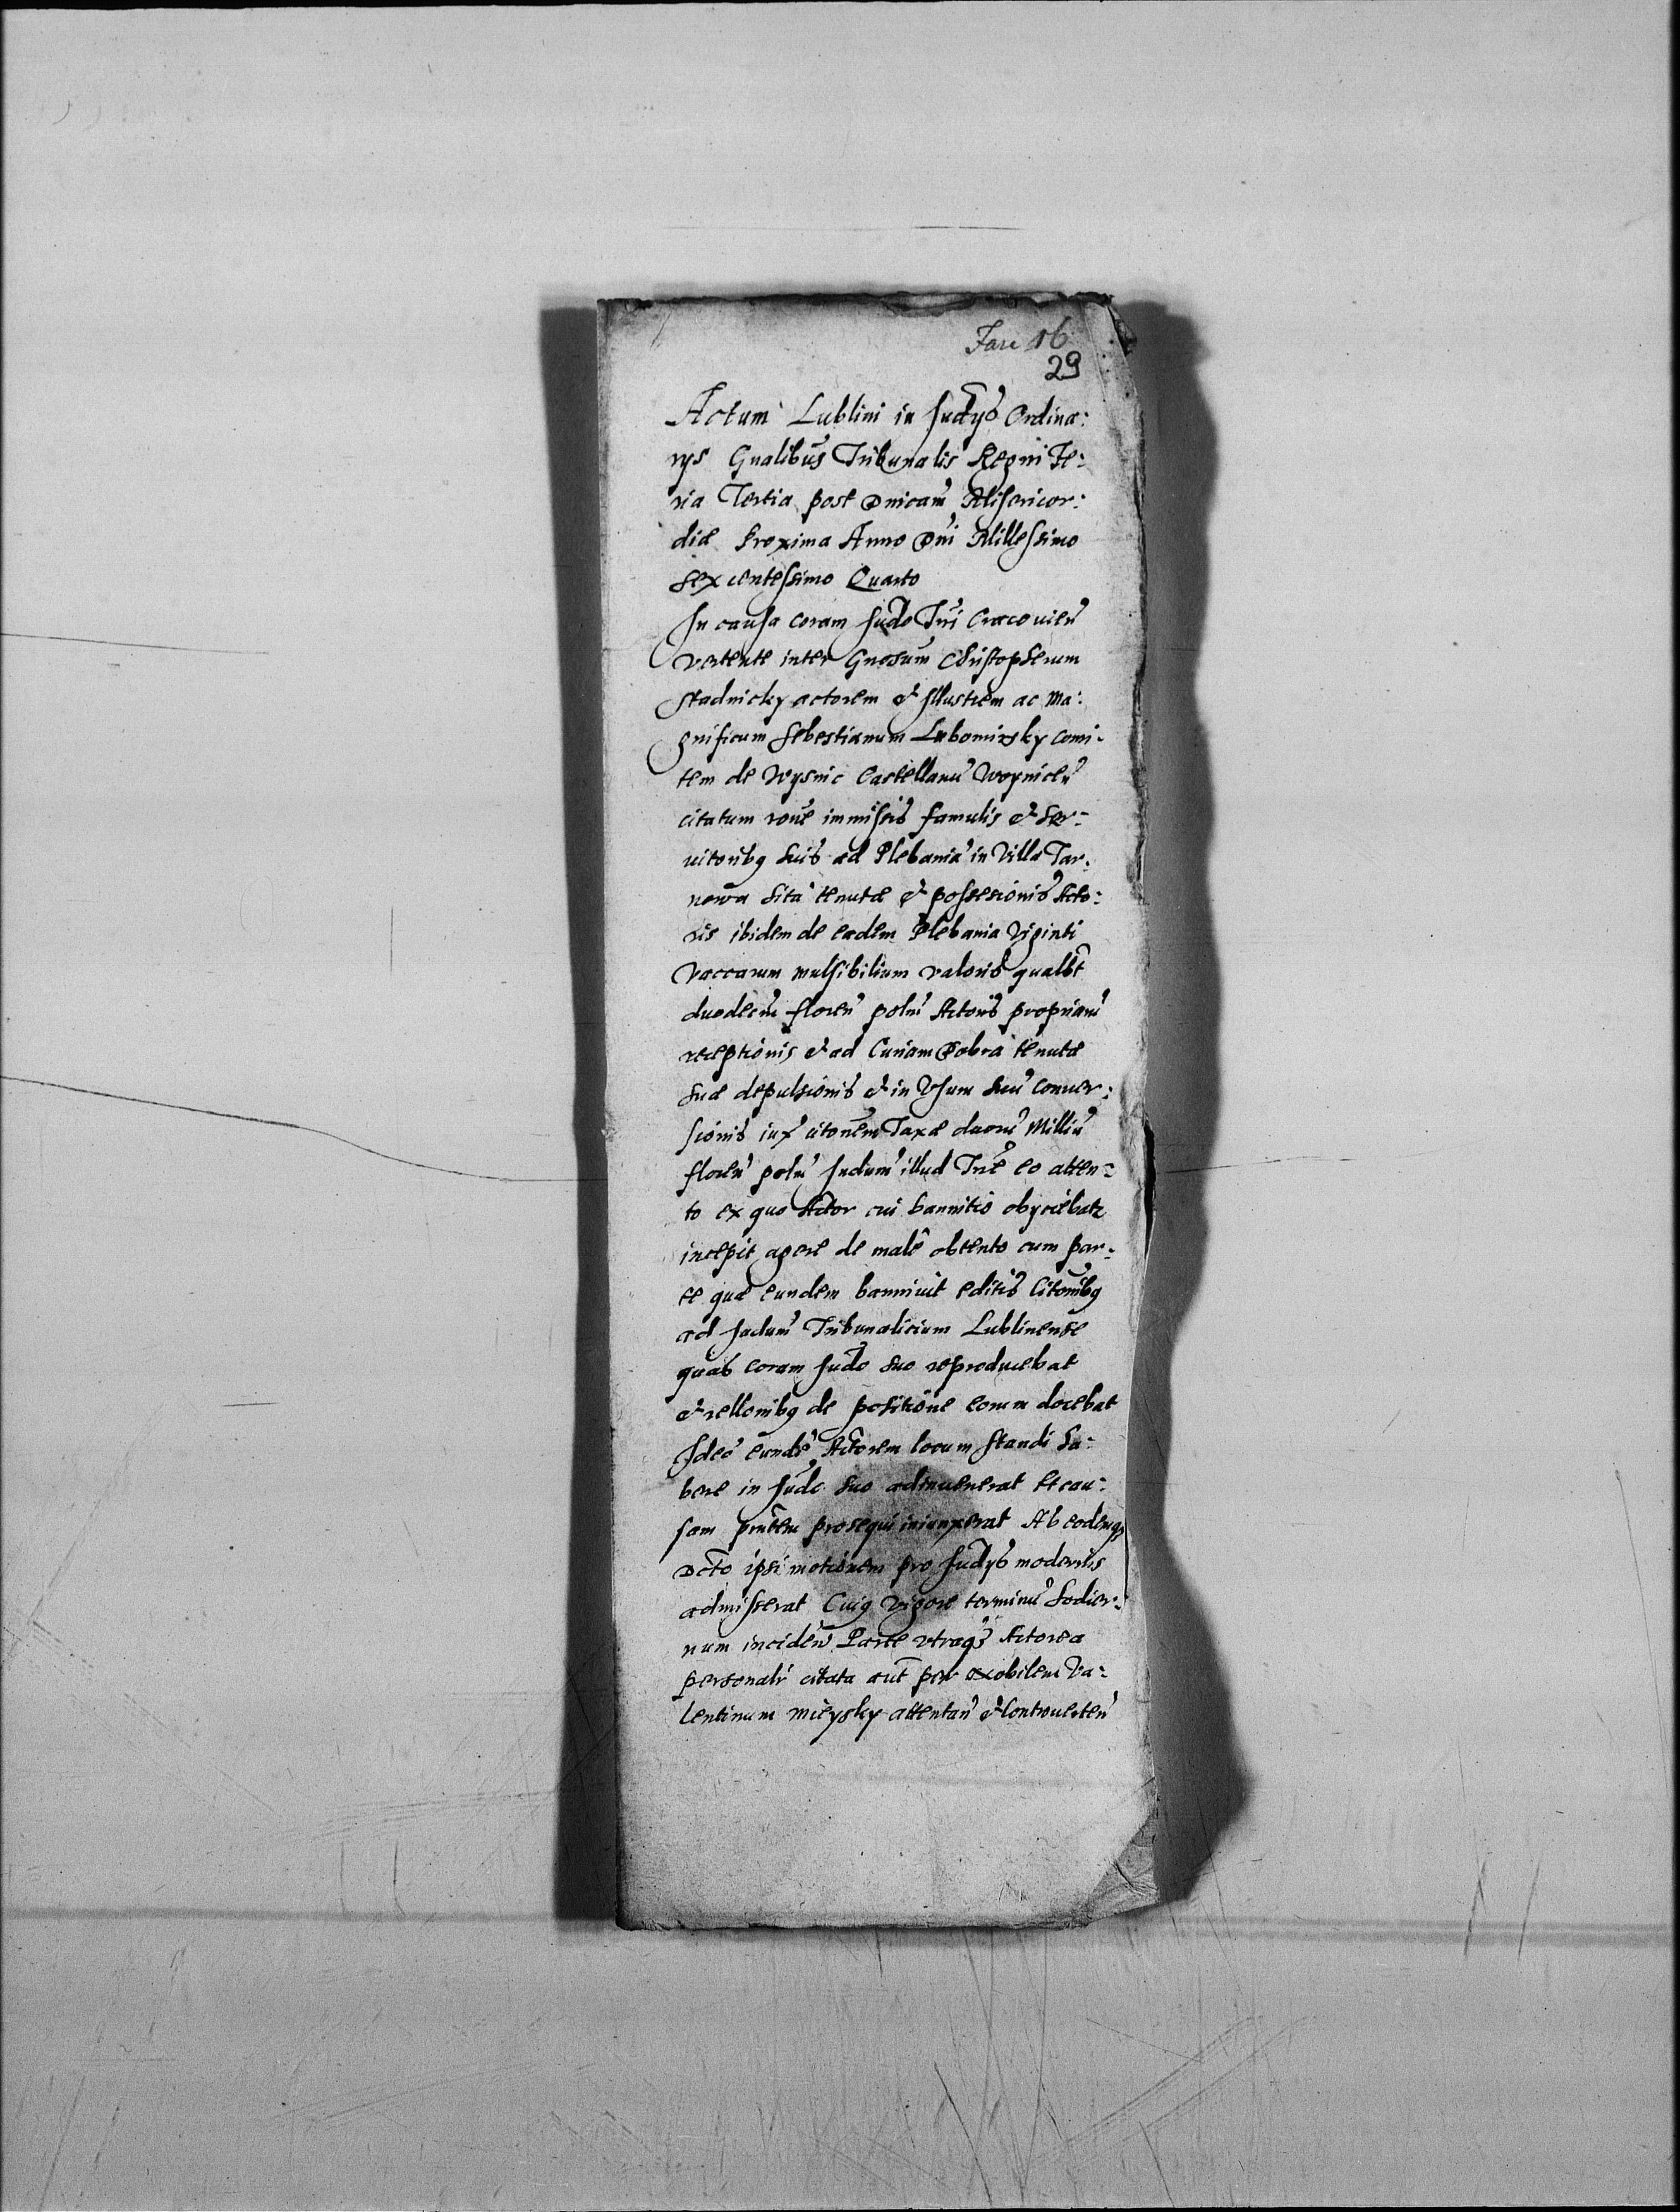 Fasc 16
29
Actum Lublini in Judys Ordina:
rys Gnalibus Tribunalis Regni Fe:
ria Tertia post Dnicam Misericor:
diæ Proxima Anno Dni Millessimo
Sexcentessimo Quarto
In causa coram Judo Trri Cracovien
vertente inter Gnosum Christopherum
Stadnicky actorem et Illustrem ac Ma:
gnificum Sebestianum Lubomirsky Comi-
tem de Wysnic Castellanu Woynicen
citatum rone immissis famulis et Ser-
uitoribq suis ad Plebania in Villa Tar-
nowa sita tenutæ et possesionis Acto:
ris ibidem de eadem Plebania Viginti
Vaccarum mulsibilium valoris qualbt
duodecim floren poln Actoris propriam
receptionis et ad Curiam Dobra tenutæ
suæ depulsionis et in Vsum suu conuer:
sionis iux citonem Taxæ duoru Milliu
floren poln Judum illud Trre eo atten-
to ex quo Actor cui bannitio obyciebatr
incepit agere de male obtento cum par-
te quæ eundem banniuit editis Citonibq
ad Judum Tribunalitium Lublinense
quas coram Judo suo reproducebat
et rellonibq de positione eorum docebat
Ideo eunde Actorem locum standi ha-
bere in Judo suo adinuenerat Et cau-
sam pntem prosequi iniunxerat Ab eodemq
Dcto ipsi motionem pro Judys modernis
admisserat Cuiq Vigore terminu hodier-
num inciden Parte vtraq Actorea
personalr citata aut per Nobilem Va-
lentinum Mieysky attentan et Controuerten